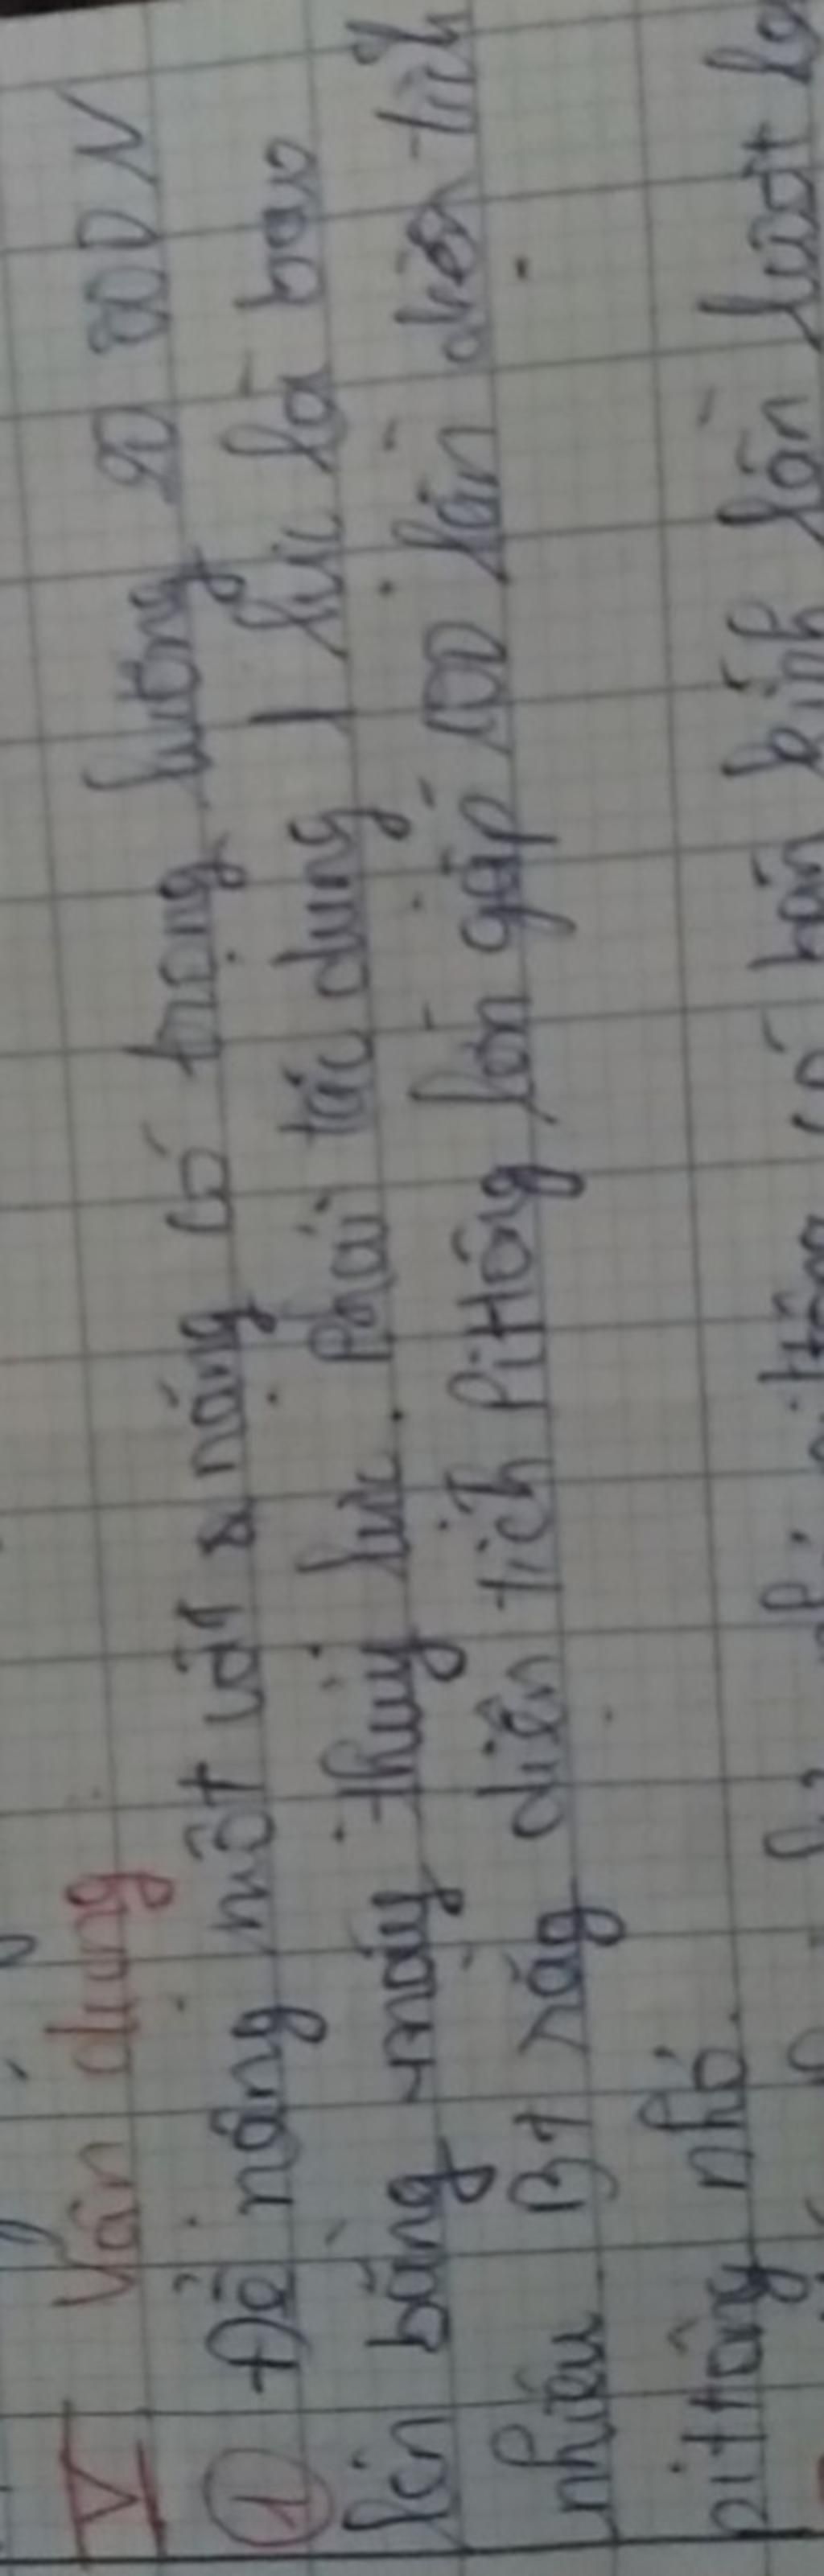 V Vận dụng
① Để nâng một vật nặng có trọng lượng 20 000 N
lên bằng máy thủy lực. Phải tác dụng 1 lực là bao
nhiêu Bt rằg diện tích Pittông lớn gấp 100 lần diện tích
pittông nhỏ.
bán kính lần lượt là